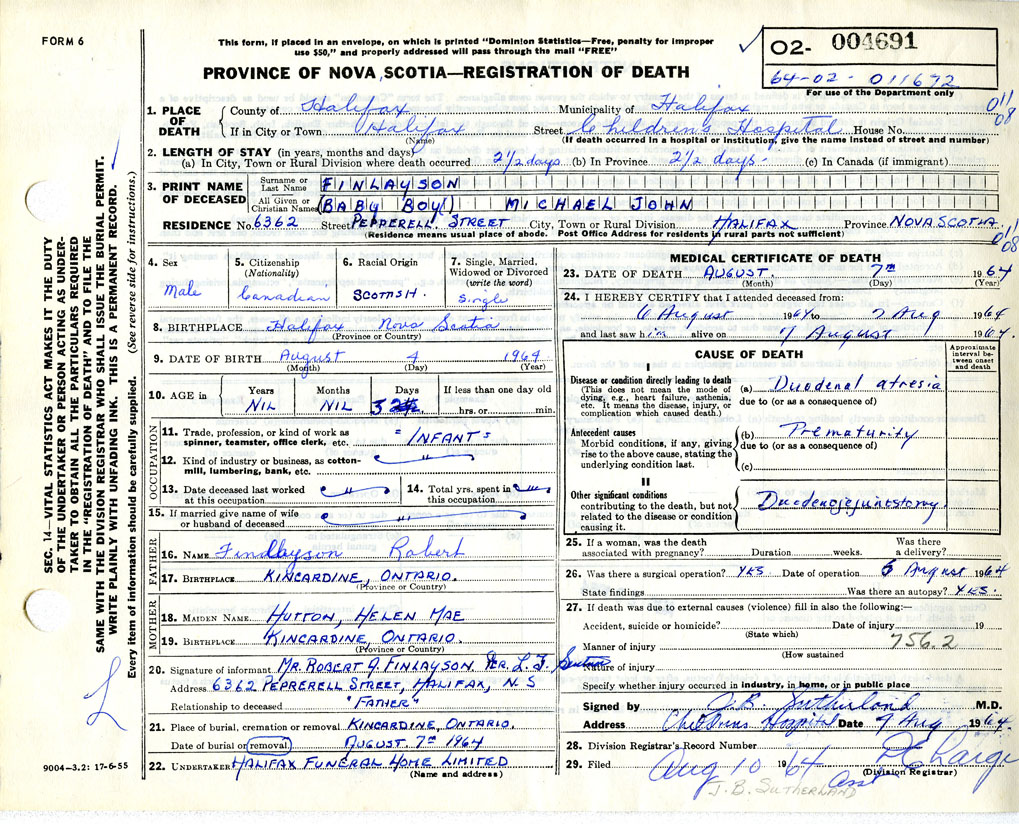 FORM 6
This form, if placed in an envelope, on which is printed "Dominion Statistics—Free, penalty for improper
use $50," and properly addressed will pass through the mail "FREE"
PROVINCE OF NOVA SCOTIA—REGISTRATION OF DEATH
O2- 004691
64-02-011672
For use of the Department only
1. PLACE OF DEATH
County of Halifax Municipality of Halifax
011 08
If in City or Town Halifax Street Children's Hospital House No.
(Name) (If death occurred in a hospital or institution, give the name instead of street and number)
2. LENGTH OF STAY (in years, months and days)
(a) In City, Town or Rural Division where death occurred 2 1/2 days (b) In Province 2 1/2 days. (c) In Canada (if immigrant)
3. PRINT NAME OF DECEASED
Surname or Last Name FINLAYSON
All Given or Christian Names (BABY BOY) MICHAEL JOHN
RESIDENCE No. 6362 Street PEPPERELL STREET City, Town or Rural Division HALIFAX Province NOVA SCOTIA.
(Residence means usual place of abode. Post Office Address for residents in rural parts not sufficient)
011 08
4. Sex
Male
5. Citizenship
(Nationality)
Canadian
6. Racial Origin
SCOTTISH.
7. Single, Married, Widowed or Divorced
(write the word)
Single
8. BIRTHPLACE Halifax Nova Scotia
(Province or Country)
9. DATE OF BIRTH August 4 1964
(Month) (Day) (Year)
10. AGE in
Years Months Days If less than one day old
NIL NIL 3 hrs. or min.
OCCUPATION
11. Trade, profession, or kind of work as
spinner, teamster, office clerk, etc. "INFANT"
12. Kind of industry or business, as cotton-
mill, lumbering, bank, etc. "
13. Date deceased last worked
at this occupation "
14. Total yrs. spent in
this occupation "
15. If married give name of wife
or husband of deceased "
FATHER
16. NAME Findlayson Robert
17. BIRTHPLACE KINCARDINE, ONTARIO.
(Province or Country)
MOTHER
18. MAIDEN NAME HUTTON, HELEN MAE
19. BIRTHPLACE KINCARDINE, ONTARIO.
(Province or Country)
20. Signature of informant MR. ROBERT J. FINLAYSON. Per. L. F.
Address 6362 PEPRERELL STREET, HALIFAX, N.S
Relationship to deceased "FATHER"
21. Place of burial, cremation or removal KINCARDINE, ONTARIO.
Date of burial or removal AUGUST. 7TH 1964
22. UNDERTAKER HALIFAX FUNERAL HOME LIMITED
(Name and address)
MEDICAL CERTIFICATE OF DEATH
23. DATE OF DEATH AUGUST. 7TH 1964
(Month) (Day) (Year)
24. I HEREBY CERTIFY that I attended deceased from:
6 August 1964 to 7 Aug 1964
and last saw him alive on 7 August 1964.
CAUSE OF DEATH
Approximate interval between onset and death
I
Disease or condition directly leading to death
(This does not mean the mode of dying, e.g., heart failure, asthenia, etc. It means the disease, injury, or complication which caused death.)
(a) Duodenal atresia
due to (or as a consequence of)
Antecedent causes
Morbid conditions, if any, giving rise to the above cause, stating the underlying condition last.
(b) Prematurity
due to (or as a consequence of)
(c)
II
Other significant conditions
contributing to the death, but not related to the disease or condition causing it.
Duodenojejunostomy.
25. If a woman, was the death
associated with pregnancy? Duration weeks. Was there a delivery?
26. Was there a surgical operation? YES Date of operation 5 August 1964
State findings Was there an autopsy? YES.
27. If death was due to external causes (violence) fill in also the following:—
Accident, suicide or homicide? Date of injury 19
(State which)
756.2
Manner of injury
(How sustained
Nature of injury
Specify whether injury occurred in industry, in home, or in public place
Signed by J.B. Sutherland M.D.
Address Childrens Hospital Date 7 Aug 1964.
28. Division Registrar's Record Number
29. Filed Aug 10 1964
(Division Registrar)
Asst
J. B. SUTHERLAND
9004—3.2: 17-6-55
SEC. 14—VITAL STATISTICS ACT MAKES IT THE DUTY
OF THE UNDERTAKER OR PERSON ACTING AS UNDER-
TAKER TO OBTAIN ALL THE PARTICULARS REQUIRED
IN THE "REGISTRATION OF DEATH" AND TO FILE THE
SAME WITH THE DIVISION REGISTRAR WHO SHALL ISSUE THE BURIAL PERMIT.
WRITE PLAINLY WITH UNFADING INK. THIS IS A PERMANENT RECORD.
Every item of information should be carefully supplied. (See reverse side for instructions.)